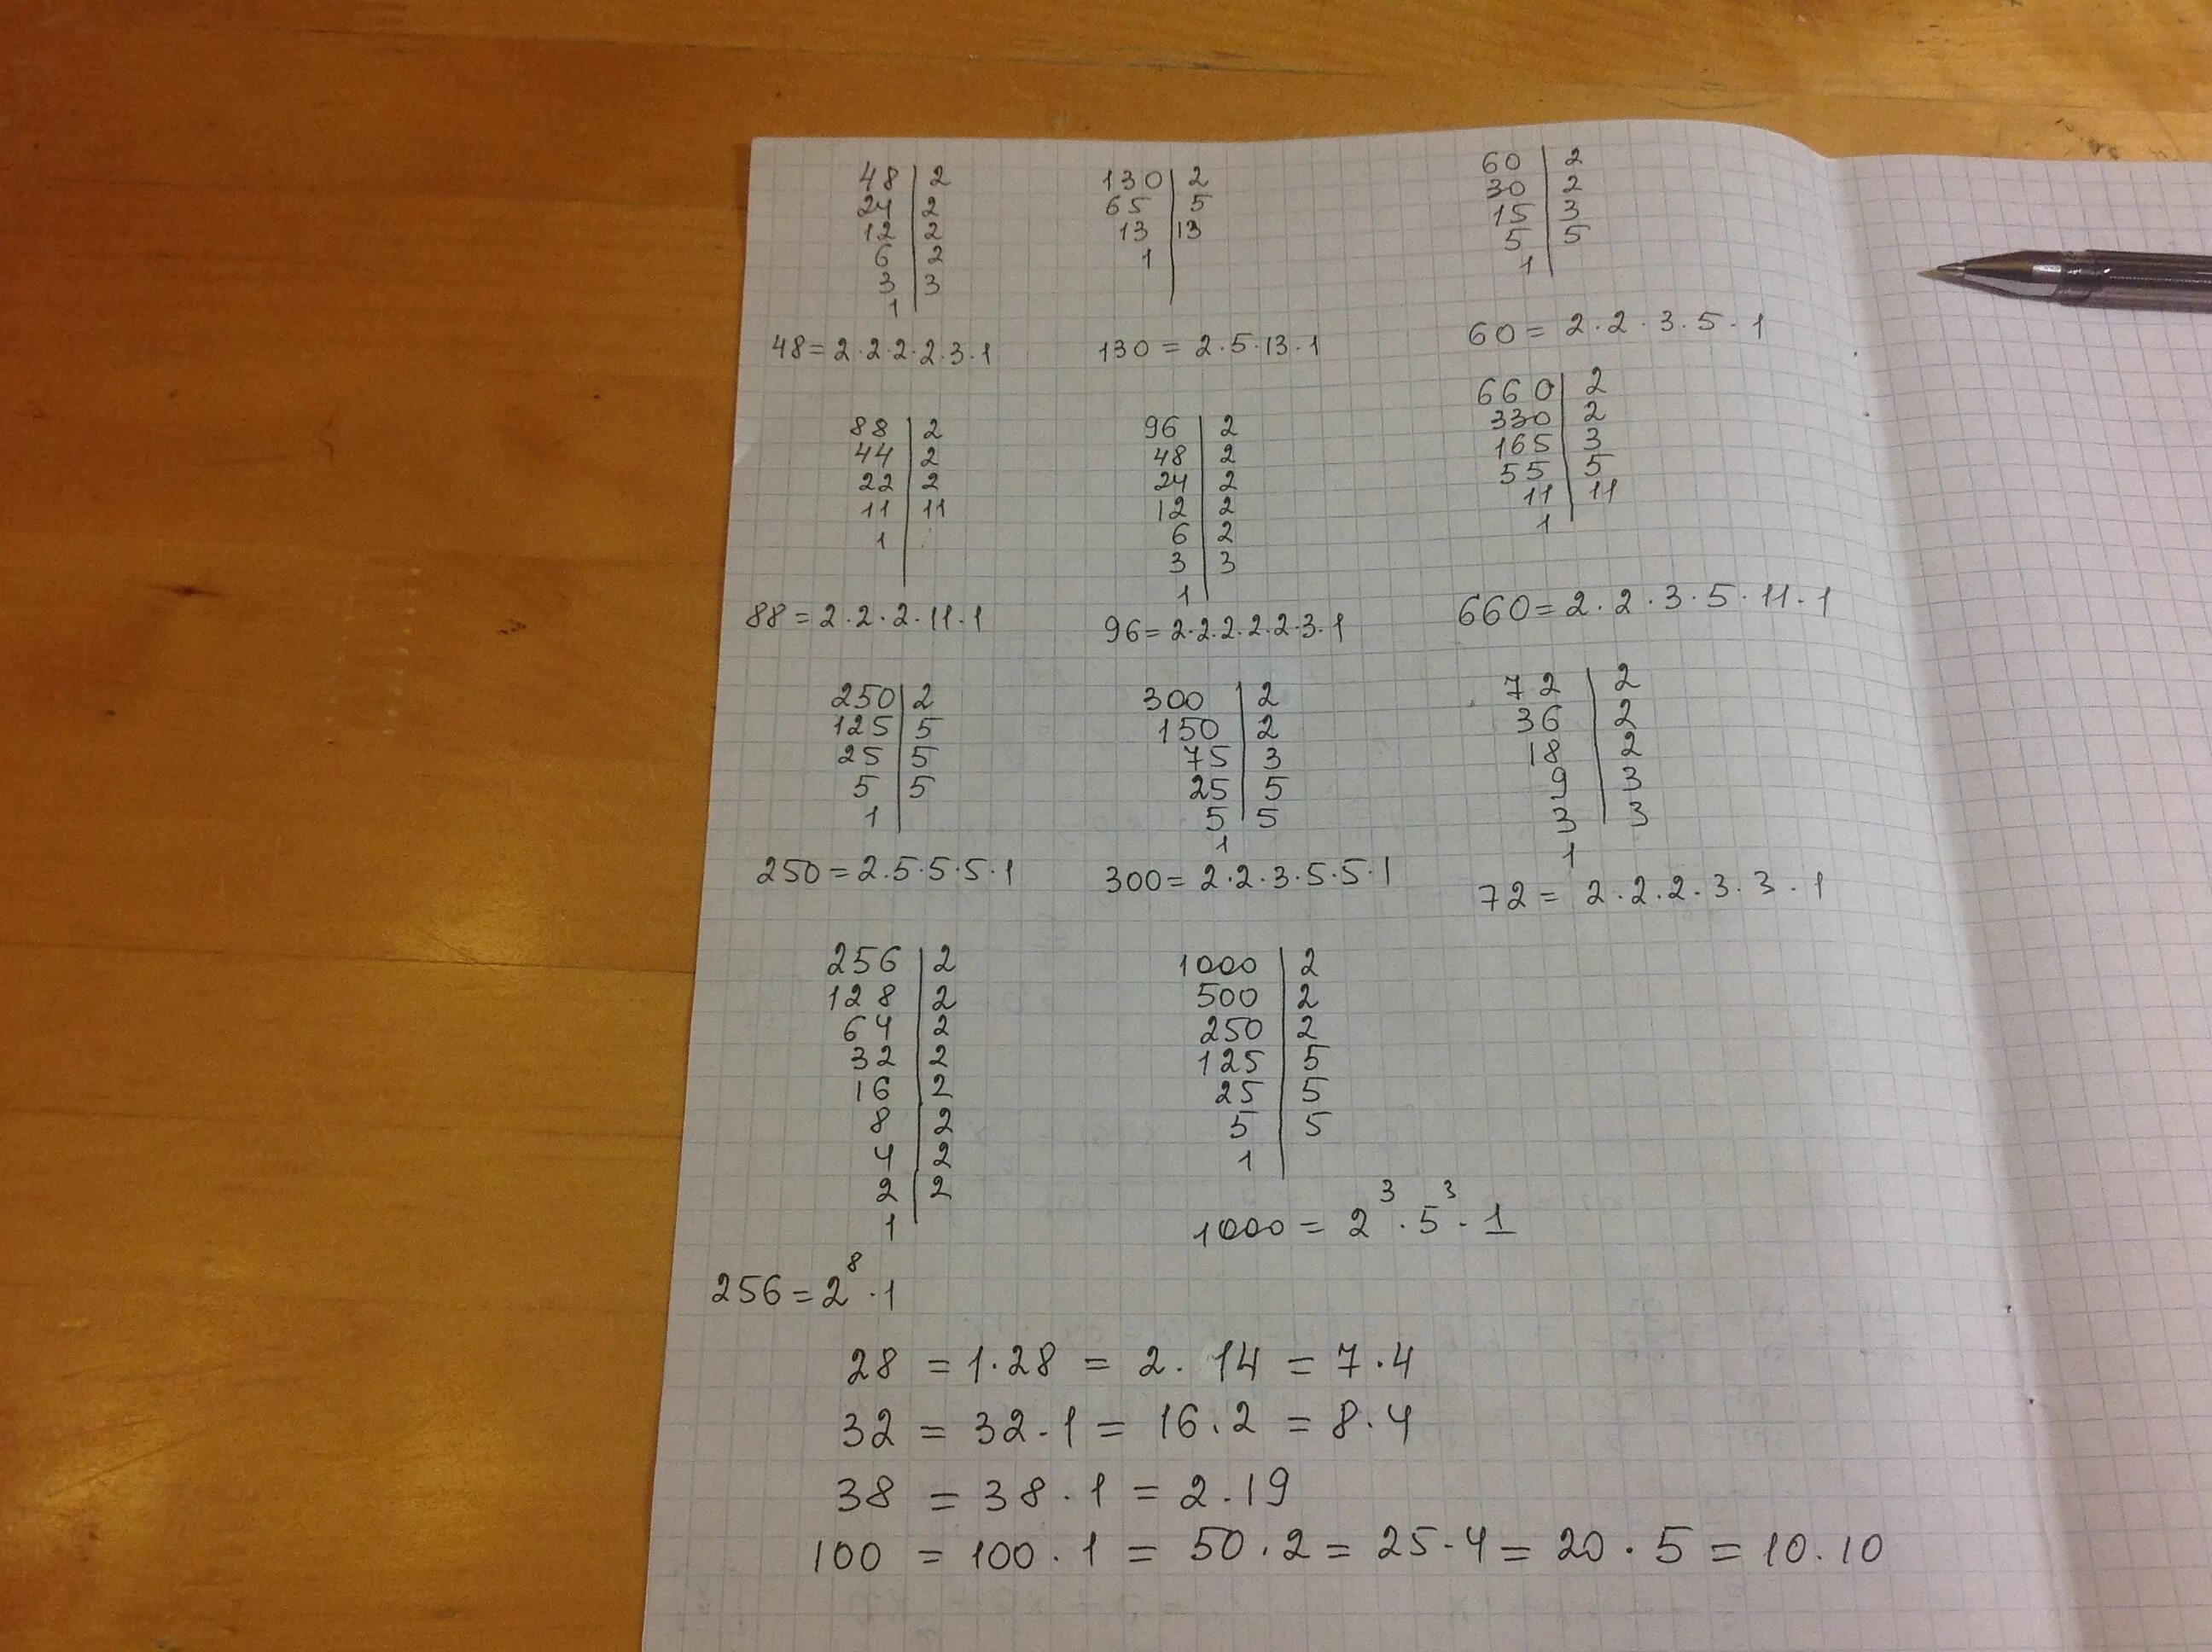 48 | 2
24 | 2
12 | 2
6 | 2
3 | 3
1 |
48 = 2 · 2 · 2 · 2 · 3 · 1
130 | 2
65 | 5
13 | 13
1 |
130 = 2 · 5 · 13 · 1
60 | 2
30 | 2
15 | 3
5 | 5
1 |
60 = 2 · 2 · 3 · 5 · 1
88 | 2
44 | 2
22 | 2
11 | 11
1 |
88 = 2 · 2 · 2 · 11 · 1
96 | 2
48 | 2
24 | 2
12 | 2
6 | 2
3 | 3
1 |
96 = 2 · 2 · 2 · 2 · 2 · 3 · 1
660 | 2
330 | 2
165 | 3
55 | 5
11 | 11
1
660 = 2 · 2 · 3 · 5 · 11 · 1
250 | 2
125 | 5
25 | 5
5 | 5
1 |
250 = 2 · 5 · 5 · 5 · 1
300 | 2
150 | 2
75 | 3
25 | 5
5 | 5
1
300 = 2 · 2 · 3 · 5 · 5 · 1
72 | 2
36 | 2
18 | 2
9 | 3
3 | 3
1
72 = 2 · 2 · 2 · 3 · 3 · 1
256 | 2
128 | 2
64 | 2
32 | 2
16 | 2
8 | 2
4 | 2
2 | 2
1 |
256 = 2⁸ · 1
1000 | 2
500 | 2
250 | 2
125 | 5
25 | 5
5 | 5
1 |
1000 = 2³ · 5³ · 1
28 = 1 · 28 = 2 · 14 = 7 · 4
32 = 32 · 1 = 16 · 2 = 8 · 4
38 = 38 · 1 = 2 · 19
100 = 100 · 1 = 50 · 2 = 25 · 4 = 20 · 5 = 10 · 10